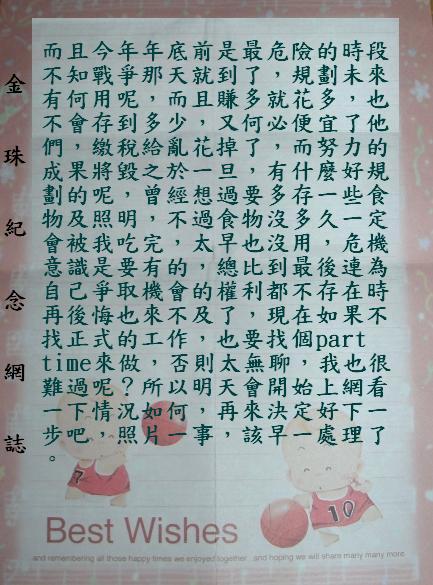 金珠紀念網誌
而且今年年底前是最危險的時段
不知戰爭那天就到了，規劃未來
有何用呢，而且賺多就花多，也
不會存到多少，又何必便宜了他
們，繳稅給亂花掉，而努力的
成果將毀之於一旦，有什麼好規
劃的呢，曾經想過要存多一些食
物及照明，不過食物沒多久一定
會被我吃完，太早也沒用，危機
意識是要有的，總比到最後連為
自己爭取機會的權利都不存在時
再後悔也來不及了，現在如果不
找正式的工作，也要找個part
time來做，否則太無聊，我也很
難過呢？所以明天會開始上網看
一下情況如何，再來決定下一
步吧，照片一事，該早一處理了
。
7
10
Best Wishes
and remembering all those happy times we enjoyed together...and hoping we will share many many more